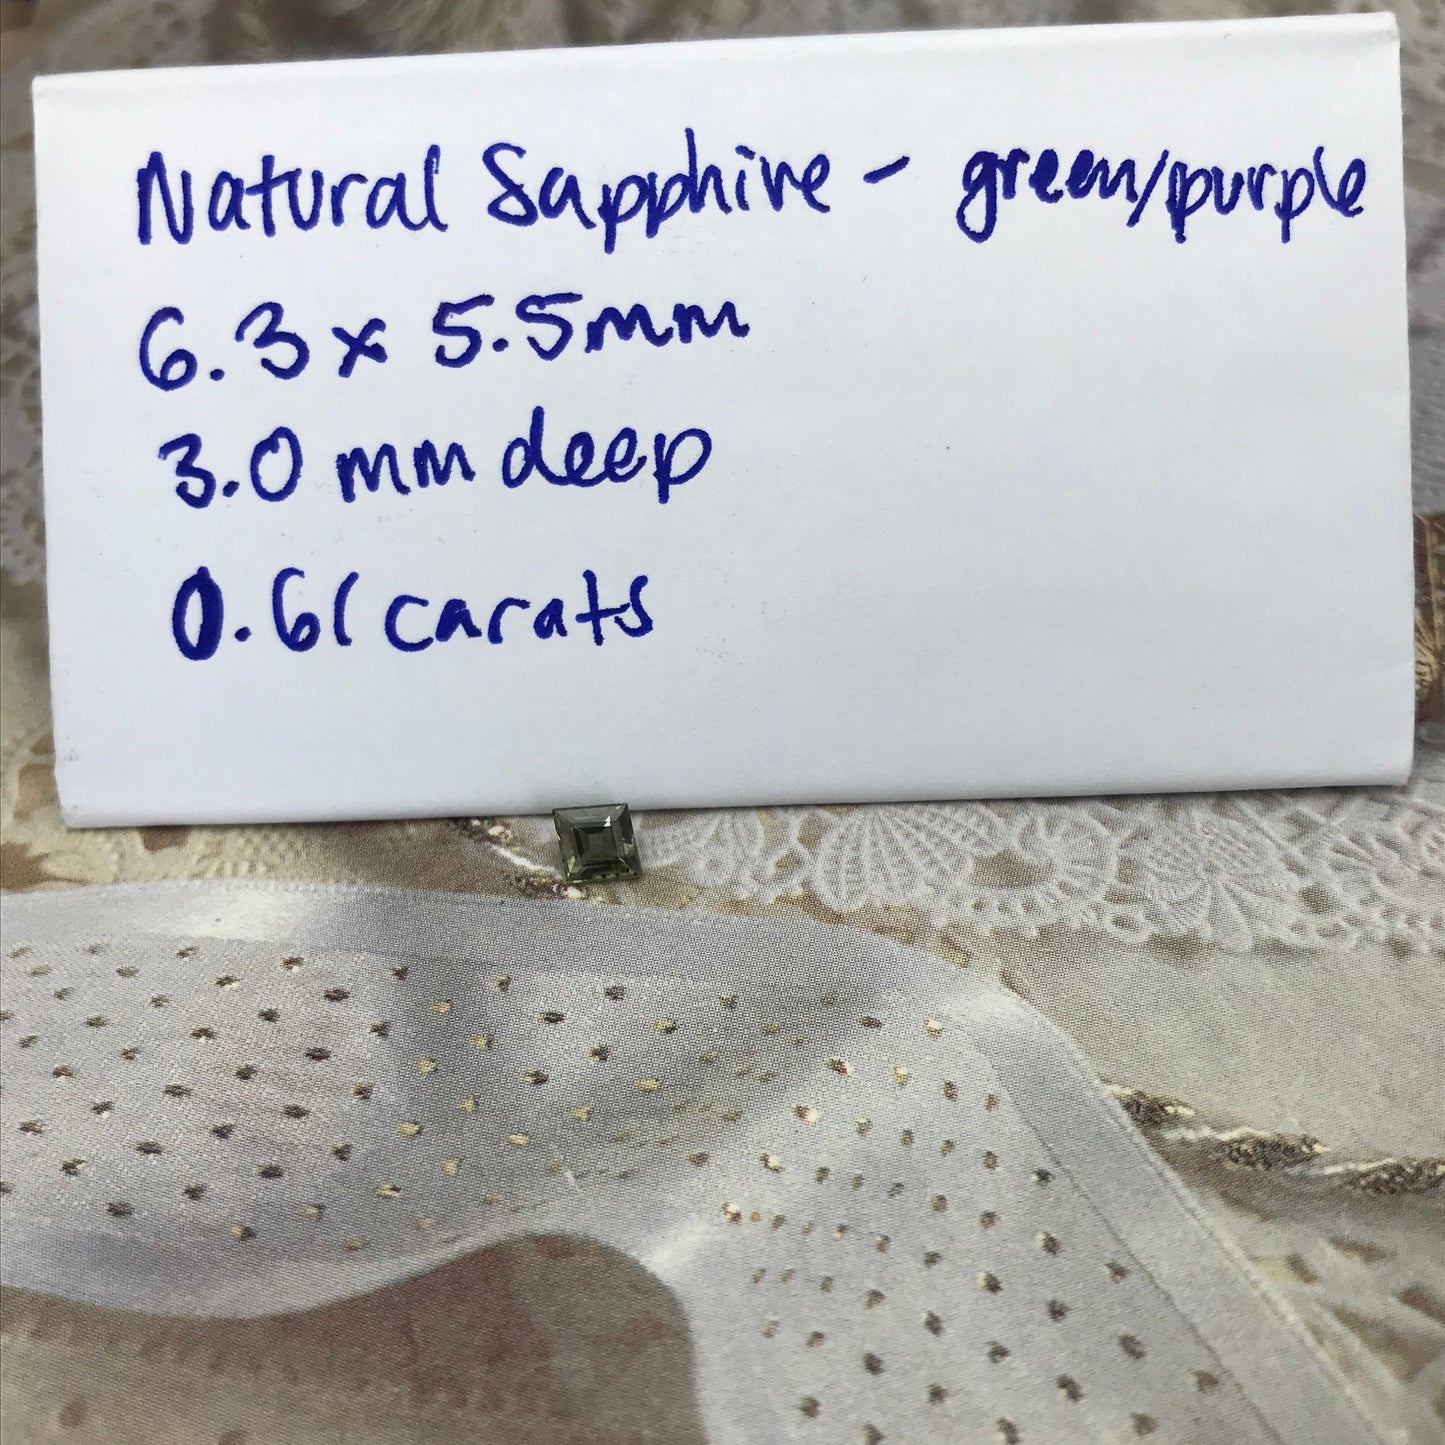 Natural Sapphire - green/purple
6.3 x 5.5mm
3.0 mm deep
0.61 carats